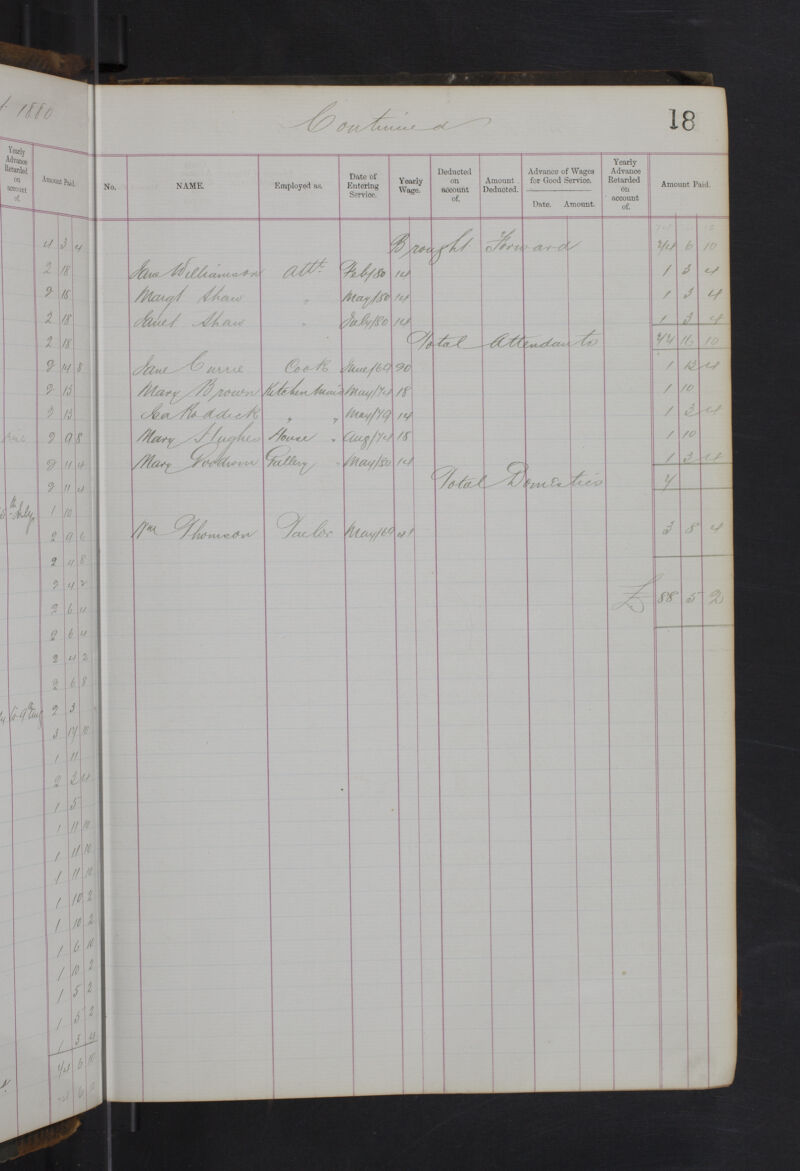 t 1880
Yearly Advance Retarded on account of.
Amount Paid.
4 3 4
2 18
2 18
2 18
2 18
2 14 8
2 13
2 13
2 9 8
2 11 4
2 11 4
1 10
2 4 8
2 4 2
2 6 4
2 6 4
2 4 2
2 6 8
2 3
3 17 10
1 11
2 3 4
1 5
1 11 10
1 11 10
1 11 10
1 10 2
1 10 2
1 6 10
1 10 2
1 5 2
1 5 2
1 3 4
Continued
18
No.
NAME.
Employed as.
Date of Entering Service.
Yearly Wage.
Deducted on account of.
Amount Deducted.
Advance of Wages for Good Service.
Date. Amount.
Yearly Advance Retarded on account of.
Amount Paid.
Brought Forward 6 10
Jane Williamson Attt Feb/80 14 1 3 4
Margt Shaw " May/80 14 1 3 4
Janet Shaw " July/80 14 1 3 4
Total Attendants 16 10
Jane Currie Cook June/69 20 1 13 4
Mary Brown Kitchen Maid May/74 18 1 10
Roddick " " May/79 14 1 3 4
Mary Hughes House " Aug/74 18 1 10
Mary Gallery May/80 14 1 3 4
Total Domestics 7
Wm Thomson Tailor May/69 41 3 8 4
£ 88 5 2